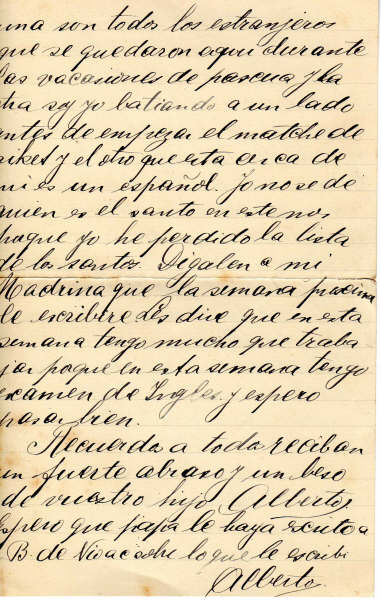 una son todos los estranjeros
que se quedaron aqui durante
las vacasiones de pascua y la
otra soy yo batiando a un lado
antes de empezar el matche de
y el otro que esta cerca de
mi es un español. Yo no se de
quien es el santo en este mes
poque yo he perdido la lista
de los santos. Digalen a mi
Madrina que la semana proxima
le escribire Les dire que en esta
semana tengo mucho que traba
jar poque en esta semana tengo
examen de Ingles y espero
pasar bien.
Recuerdos a todos reciban
un fuerte abraso y un beso
de vuestro hijo, Alberto,
Espero que papa le haya escrito a
B. de sobre lo que le escribi
Alberto.